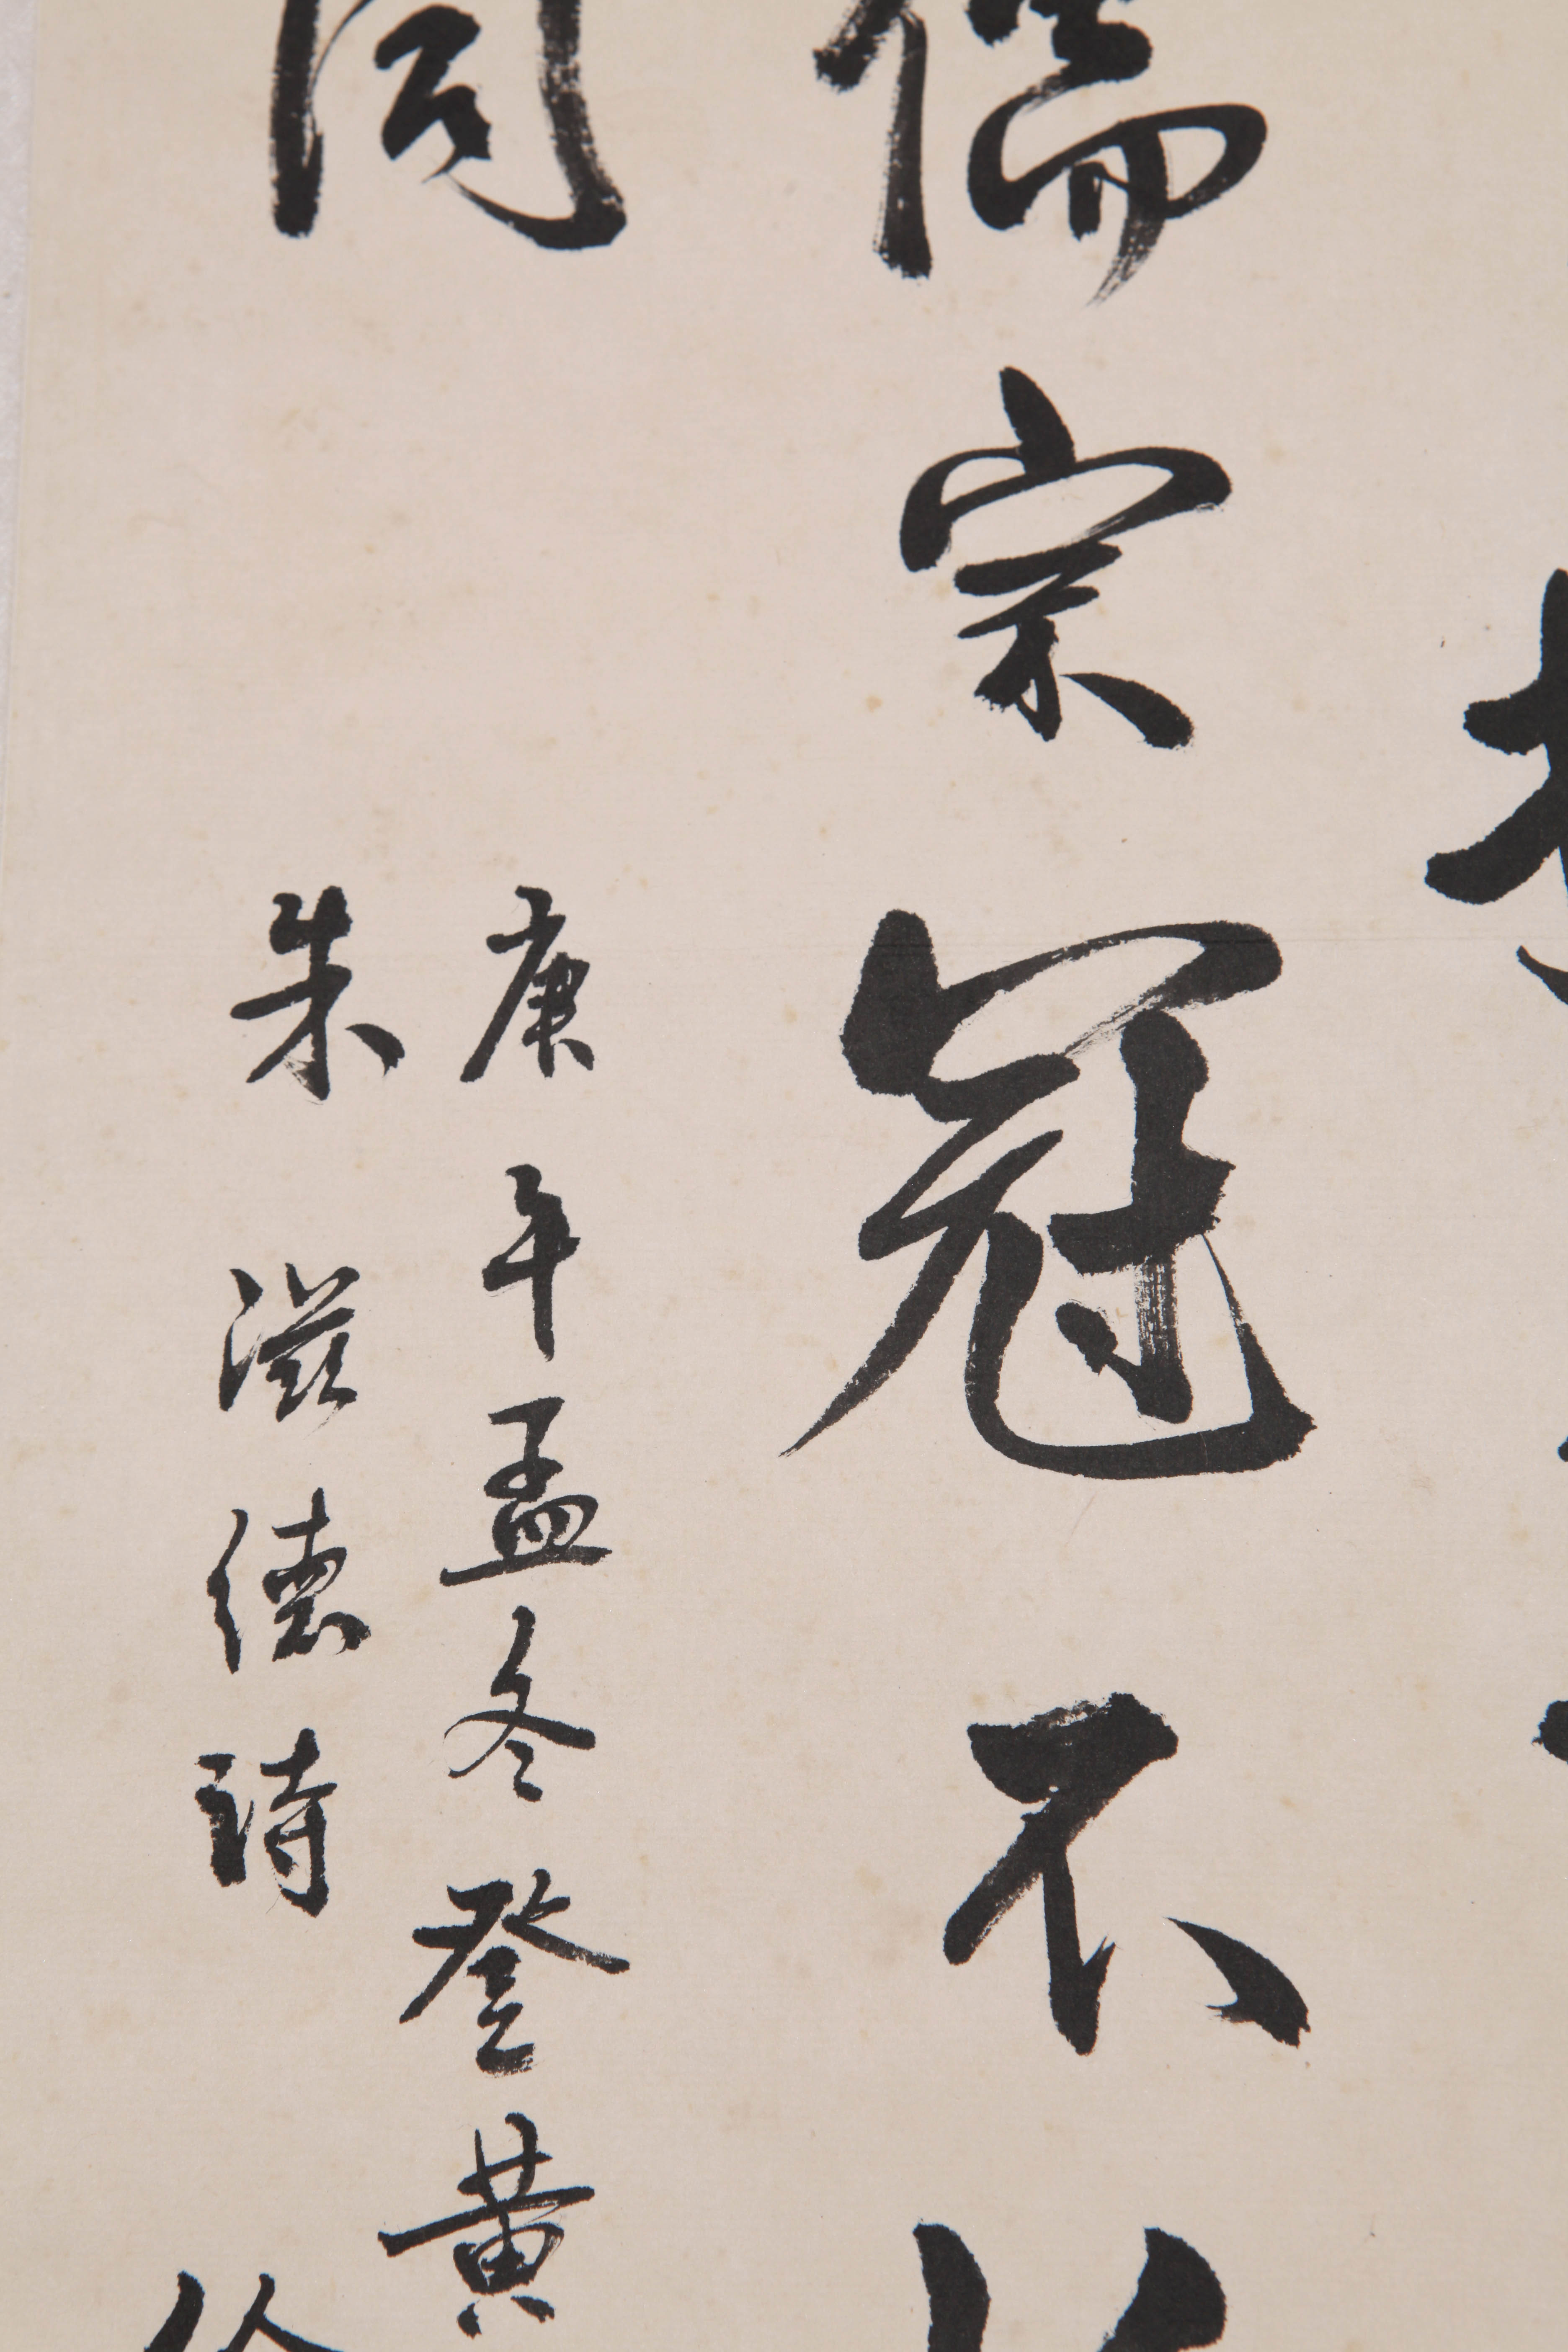 儒宗冠不
同
庚午孟冬登黄
朱滋德詩